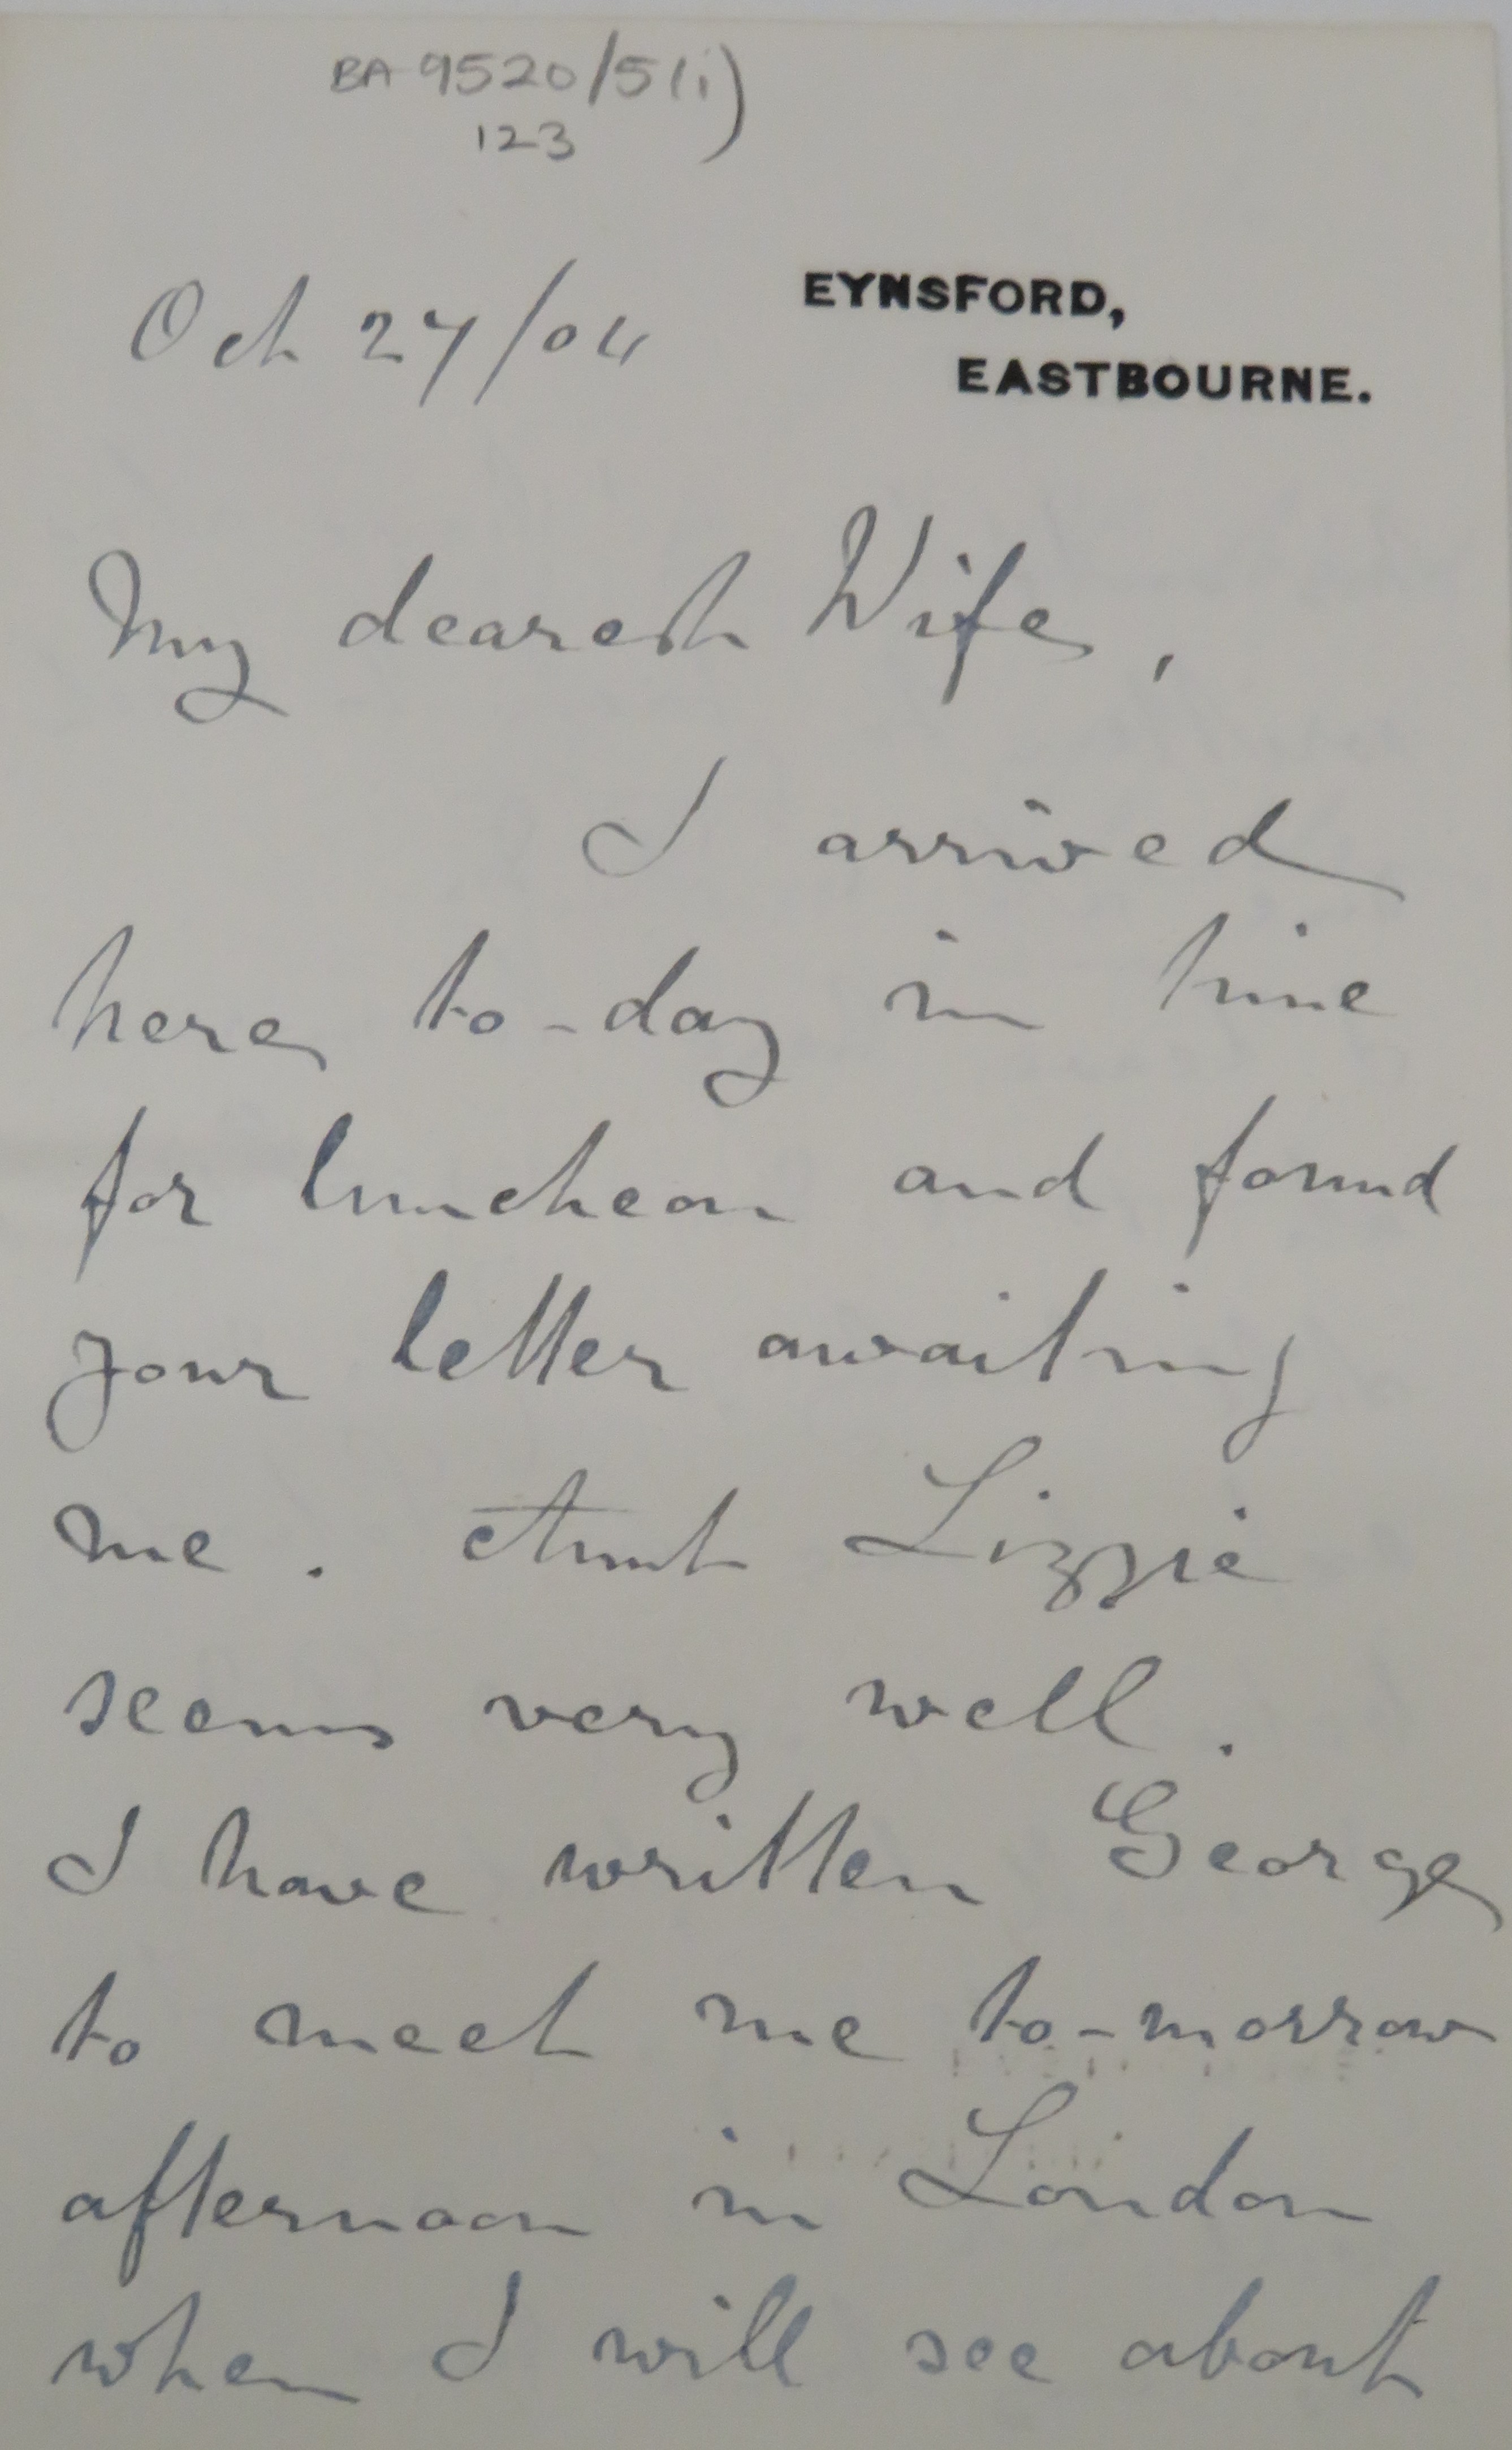 BA 9520/5(i)
123
Oct 27/04
EYNSFORD,
EASTBOURNE.
My dearest Wife,
I arrived
here to-day in time
for luncheon and found
your letter awaiting
me. Aunt Lizzie
seems very well.
I have written George
to meet me to-morrow
afternoon in London
when I will see about